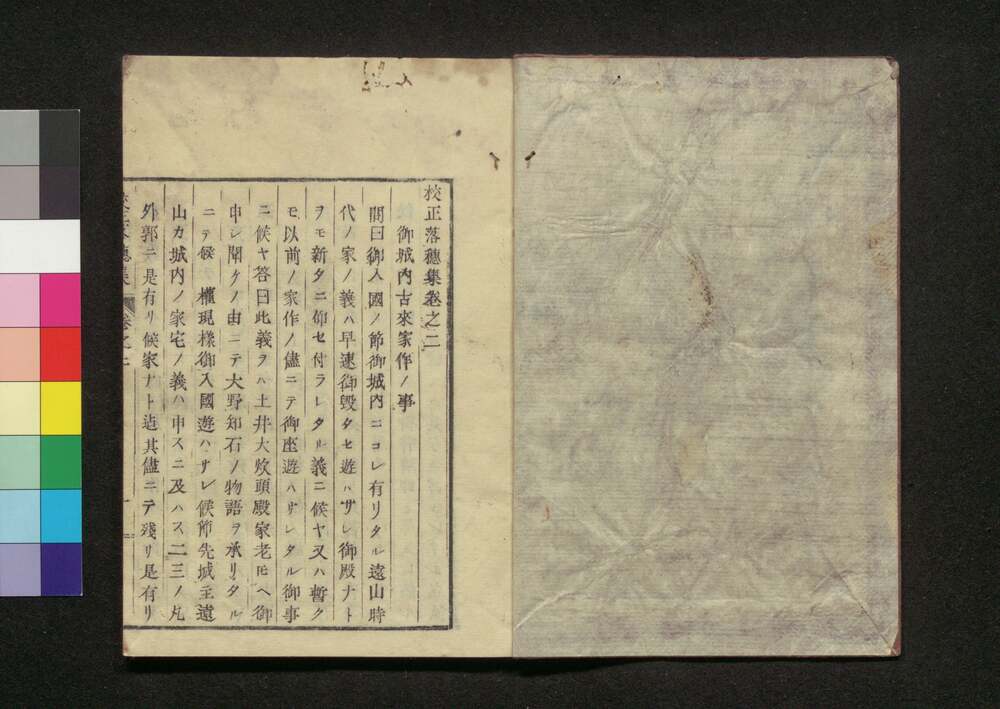 校正落穗集卷之二
御城內古來家作ノ事
問曰御入國ノ節御城內ニコレ有リタル遠山時
代ノ家ノ義ハ早速御毀タセ遊ハサレ御殿ナト
ヲモ新タニ仰セ付ラレタル義ニ候ヤ又ハ暫ク
モ以前ノ家作ノ儘ニテ御座遊ハサレタル御事
ニ候ヤ答曰此義ヲハ土井大炊頭殿家老モヘ御
申シ聞ケノ由ニテ大野知石ノ物語ヲ承リタル
ニテ候 權現樣御入國遊ハサレ候節先城主遠
山カ城內ノ家宅ノ義ハ申スニ及ハス二三ノ丸
外郭ニ是有リ候家ナト迄其儘ニテ殘リ是有リ
卷之二